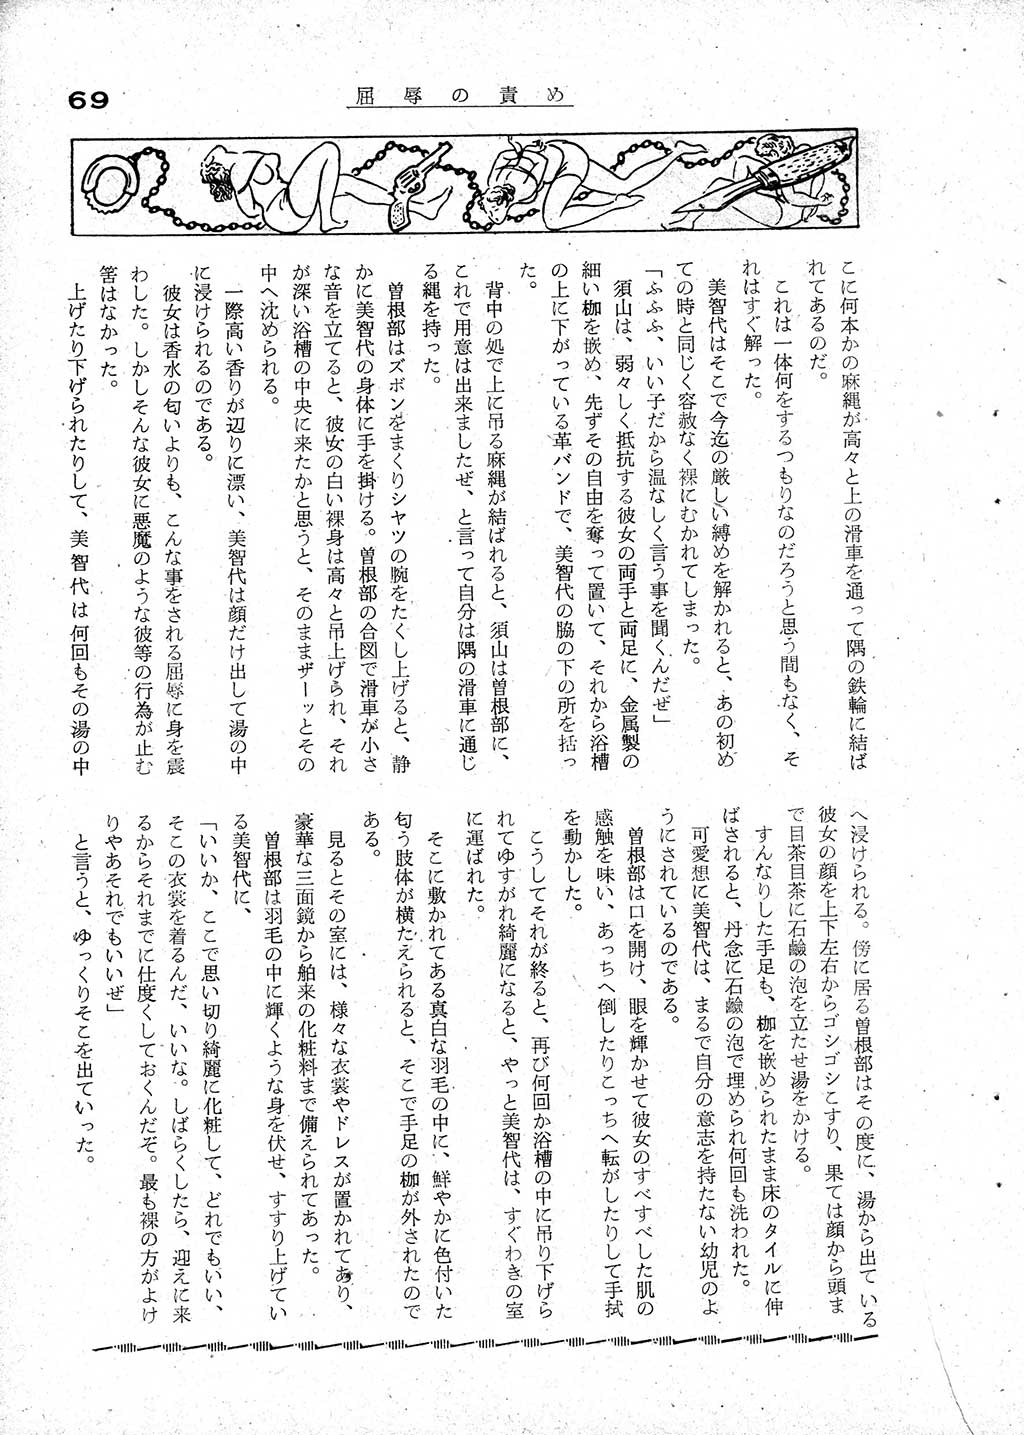 69
屈辱の責め
こに何本かの麻縄が高々と上の滑車を通って隅の鉄輪に結ば
れてあるのだ。
これは一体何をするつもりなのだろうと思う間もなく、そ
れはすぐ解った。
美智代はそこで今迄の厳しい縛めを解かれると、あの初め
ての時と同じく容赦なく裸にむかれてしまった。
「ふふふ、いい子だから温なしく言う事を聞くんだぜ」
須山は、弱々しく抵抗する彼女の両手と両足に、金属製の
細い枷を嵌め、先ずその自由を奪って置いて、それから浴槽
の上に下がっている革バンドで、美智代の脇の下の所を括っ
た。
背中の処で上に吊る麻縄が結ばれると、須山は曽根部に、
これで用意は出来ましたぜ、と言って自分は隅の滑車に通じ
る縄を持った。
曽根部はズボンをまくりシャツの腕をたくし上げると、静
かに美智代の身体に手を掛ける。曽根部の合図で滑車が小さ
な音を立てると、彼女の白い裸身は高々と吊上げられ、それ
が深い浴槽の中央に来たかと思うと、そのままザーッとその
中へ沈められる。
一際高い香りが辺りに漂い、美智代は顔だけ出して湯の中
に浸けられるのである。
彼女は香水の匂いよりも、こんな事をされる屈辱に身を震
わした。しかしそんな彼女に悪魔のような彼等の行為が止む
筈はなかった。
上げたり下げられたりして、美智代は何回もその湯の中
へ浸けられる。傍に居る曽根部はその度に、湯から出ている
彼女の顔を上下左右からゴシゴシこすり、果ては顔から頭ま
で目茶目茶に石鹼の泡を立たせ湯をかける。
すんなりした手足も、枷を嵌められたまま床のタイルに伸
ばされると、丹念に石鹼の泡で埋められ何回も洗われた。
可愛想に美智代は、まるで自分の意志を持たない幼児のよ
うにされているのである。
曽根部は口を開け、眼を輝かせて彼女のすべすべした肌の
感触を味い、あっちへ倒したりこっちへ転がしたりして手拭
を動かした。
こうしてそれが終ると、再び何回か浴槽の中に吊り下げら
れてゆすがれ綺麗になると、やっと美智代は、すぐわきの室
に運ばれた。
そこに敷かれてある真白な羽毛の中に、鮮やかに色付いた
匂う肢体が横たえられると、そこで手足の枷が外されたので
ある。
見るとその室には、様々な衣裳やドレスが置かれてあり、
豪華な三面鏡から舶来の化粧料まで備えられてあった。
曽根部は羽毛の中に輝くような身を伏せ、すすり上げてい
る美智代に、
「いいか、ここで思い切り綺麗に化粧して、どれでもいい、
そこの衣裳を着るんだ、いいな。しばらくしたら、迎えに来
るからそれまでに仕度くしておくんだぞ。最も裸の方がよけ
りやあそれでもいいぜ」
と言うと、ゆっくりそこを出ていった。